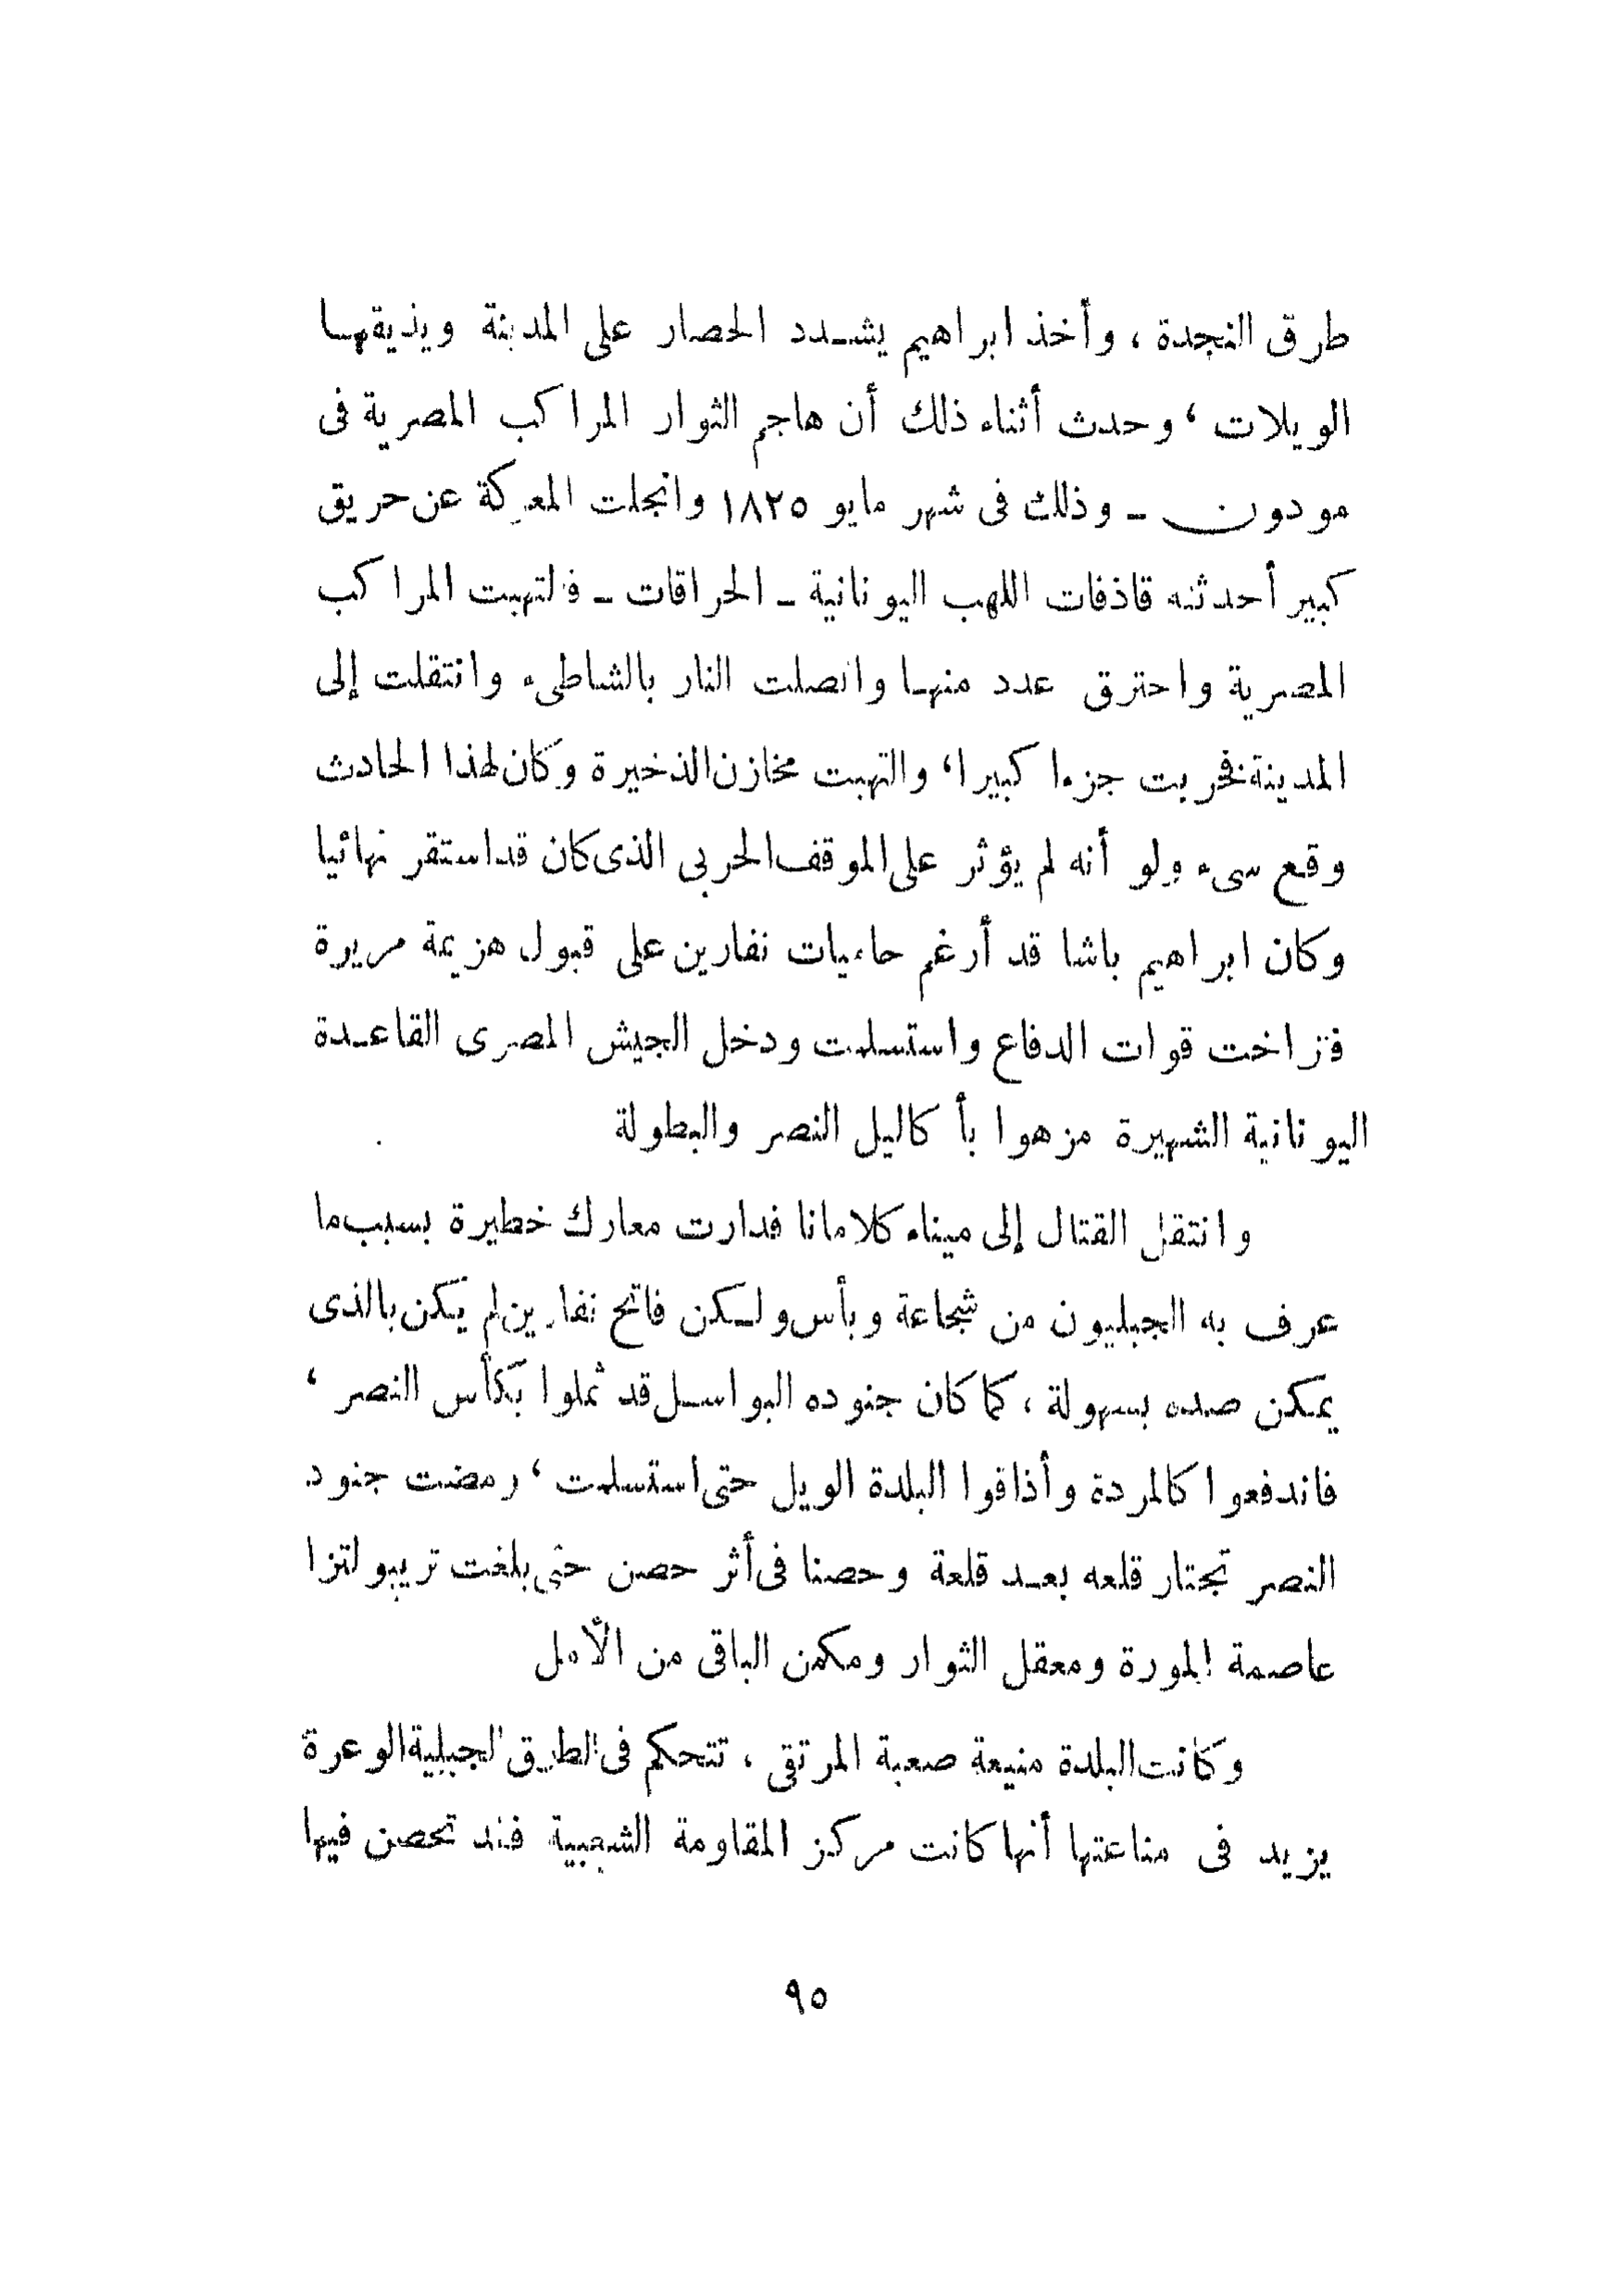 طرق النجدة ، وأخذ ابراهيم يشدد الحصار على المدينة ويذيقها
الويلات ، وحدث أثناء ذلك أن هاجم الثوار المراكب المصرية فى
مودون ــ وذلك فى شهر مايو ١٨٢٥ وانجلت المعركة عن حريق
كبير أحدثته قاذفات اللهب اليونانية ــ الحراقات ــ فالتهبت المراكب
المصرية واحترق عدد منها واتصلت النار بالشاطىء وانتقلت إلى
المدينة فخربت جزءا كبيرا ، والتهبت مخازن الذخيرة وكان لهذا الحادث
وقع سىء ولو أنه لم يؤثر على الموقف الحربى الذى كان قد استقر نهائيا
وكان ابراهيم باشا قد أرغم حاميات نفارين على قبول هزيمة مريرة
فتراخت قوات الدفاع واستسلمت ودخل الجيش المصرى القاعدة
اليونانية الشهيرة مزهوا بأكاليل النصر والبطولة
وانتقل القتال إلى ميناء كلامانا فدارت معارك خطيرة بسبب ما
عرف به الجبليون من شجاعة وبأس ولكن فاتح نفارين لم يكن بالذى
يمكن صده بسهولة ، كما كان جنوده البواسل قد ثملوا بكأس النصر ،
فاندفعوا كالمردة وأذاقوا البلدة الويل حتى استسلمت ، ومضت جنود
النصر تجتاز قلعه بعد قلعة وحصنا فى أثر حصن حتى بلغت تريبولتزا
عاصمة المورة ومعقل الثوار ومكمن الباقى من الأمل
وكانت البلدة منيعة صعبة المرتقى ، تتحكم فى الطرق الجبلية الوعرة
يزيد فى مناعتها أنها كانت مركز المقاومة الشعبية فقد تحصن فيها
٩٥